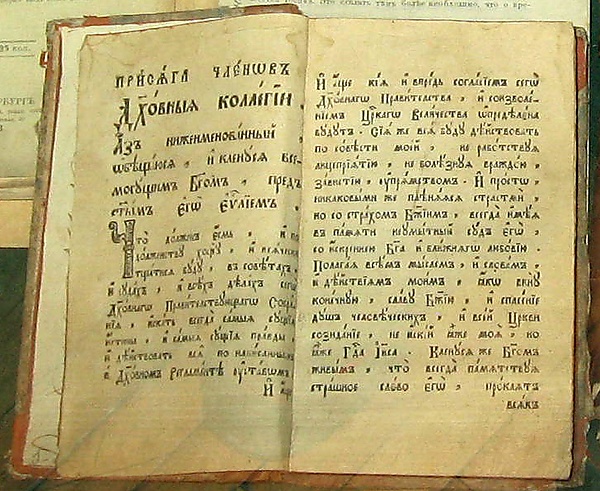 ПРИСѦГА ЧЛЕНѠВЪ
ДХО́ВНЫѦ КОЛЛЕ́ГІИ .
А҆́зъ нижеименова́нный ,
ѡ҆бѣща́юсѧ , и҆ клену́сѧ все-
могу́щимъ Бг҃омъ , предъ
ст҃ы́мъ є҆гѡ̀ є҆ѵⷢ҇лїемъ ,
Что̀ до́лженъ є҆́смь , и҆ по
до́лжностꙋ хощꙋ̀ , и҆ всѧ́чески
тщатисѧ бꙋ́дꙋ , въ совѣ́тахъ ,
и҆ сꙋда́хъ , и҆ всѣ́хъ дѣ́лахъ сегѡ̀
Дх҃о́внагѡ Прави́тельствꙋющагѡ Собра-
нїѧ , и҆ска́ть всегда̀ са́мыѧ сꙋ́щїѧ
и҆́стины , и҆ са́мыѧ сꙋ́щїѧ пра́вды ,
и҆ дѣ́йствовать всѧ̑ по напи́саннымъ
въ Дх҃о́вномъ Регла́ментѣ ᲂу҆ста́вамъ ,
И҆ а҆́ще
И҆ а҆́ще кі́ѧ и҆ впре́дь согла́сїемъ сегѡ̀
Дх҃о́внагѡ Прави́тельства , и҆ соизволе́-
нїемъ Цр҃кагѡ Вели́чества ѡ҆предѣлена̀
бꙋ́дꙋтъ . Сїѧ̑ же всѧ̑ бꙋ́дꙋ дѣ́йствовать
по со́вѣсти мое́й , не рабо́тствꙋѧ
лицепрїѧ́тїю , не болѣ́знꙋѧ враждо́ю ,
за́вистїю , ᲂу҆прѧ́мствомъ . И҆ про́стѡ ,
никаки́ми же плѣнѧ́ѧсѧ страстьмѝ ,
но со стра́хомъ Бж҃їимъ , всегда̀ и҆мѣ́ѧ
въ па́мѧти неумы́тный сꙋ́дъ є҆гѡ̀ ,
со и҆́скреннею Бг҃а и҆ бли́жнѧгѡ любо́вїю .
Полага́ѧ всѣ́мъ мы́слемъ , и҆ слова́мъ ,
и҆ дѣ́йствїѧмъ мои́мъ , ꙗ҆́кѡ винꙋ̀
коне́чнꙋю , сла́вꙋ Бж҃їю , и҆ спасе́нїе
дꙋ́шъ человѣ́ческихъ , и҆ все́й Цр҃кви
созида́нїе , не и҆скі́й ꙗ҆̀же моѧ̑ , но
ꙗ҆̀же Гдⷭ҇а І҆и҃са . Клену́сѧ же Бг҃омъ
живы́мъ , что̀ всегда̀ па́мѧтствꙋѧ
стра́шное сло́во є҆гѡ̀ , про́клѧтъ
всѧ́къ